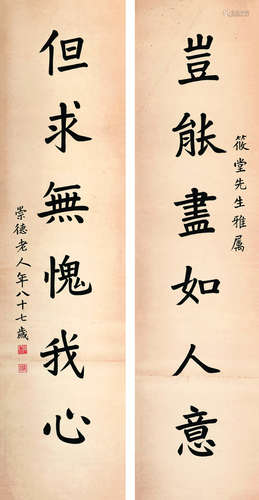 筱堂先生雅属
豈能盡如人意
但求無愧我心
崇德老人年八十七歲